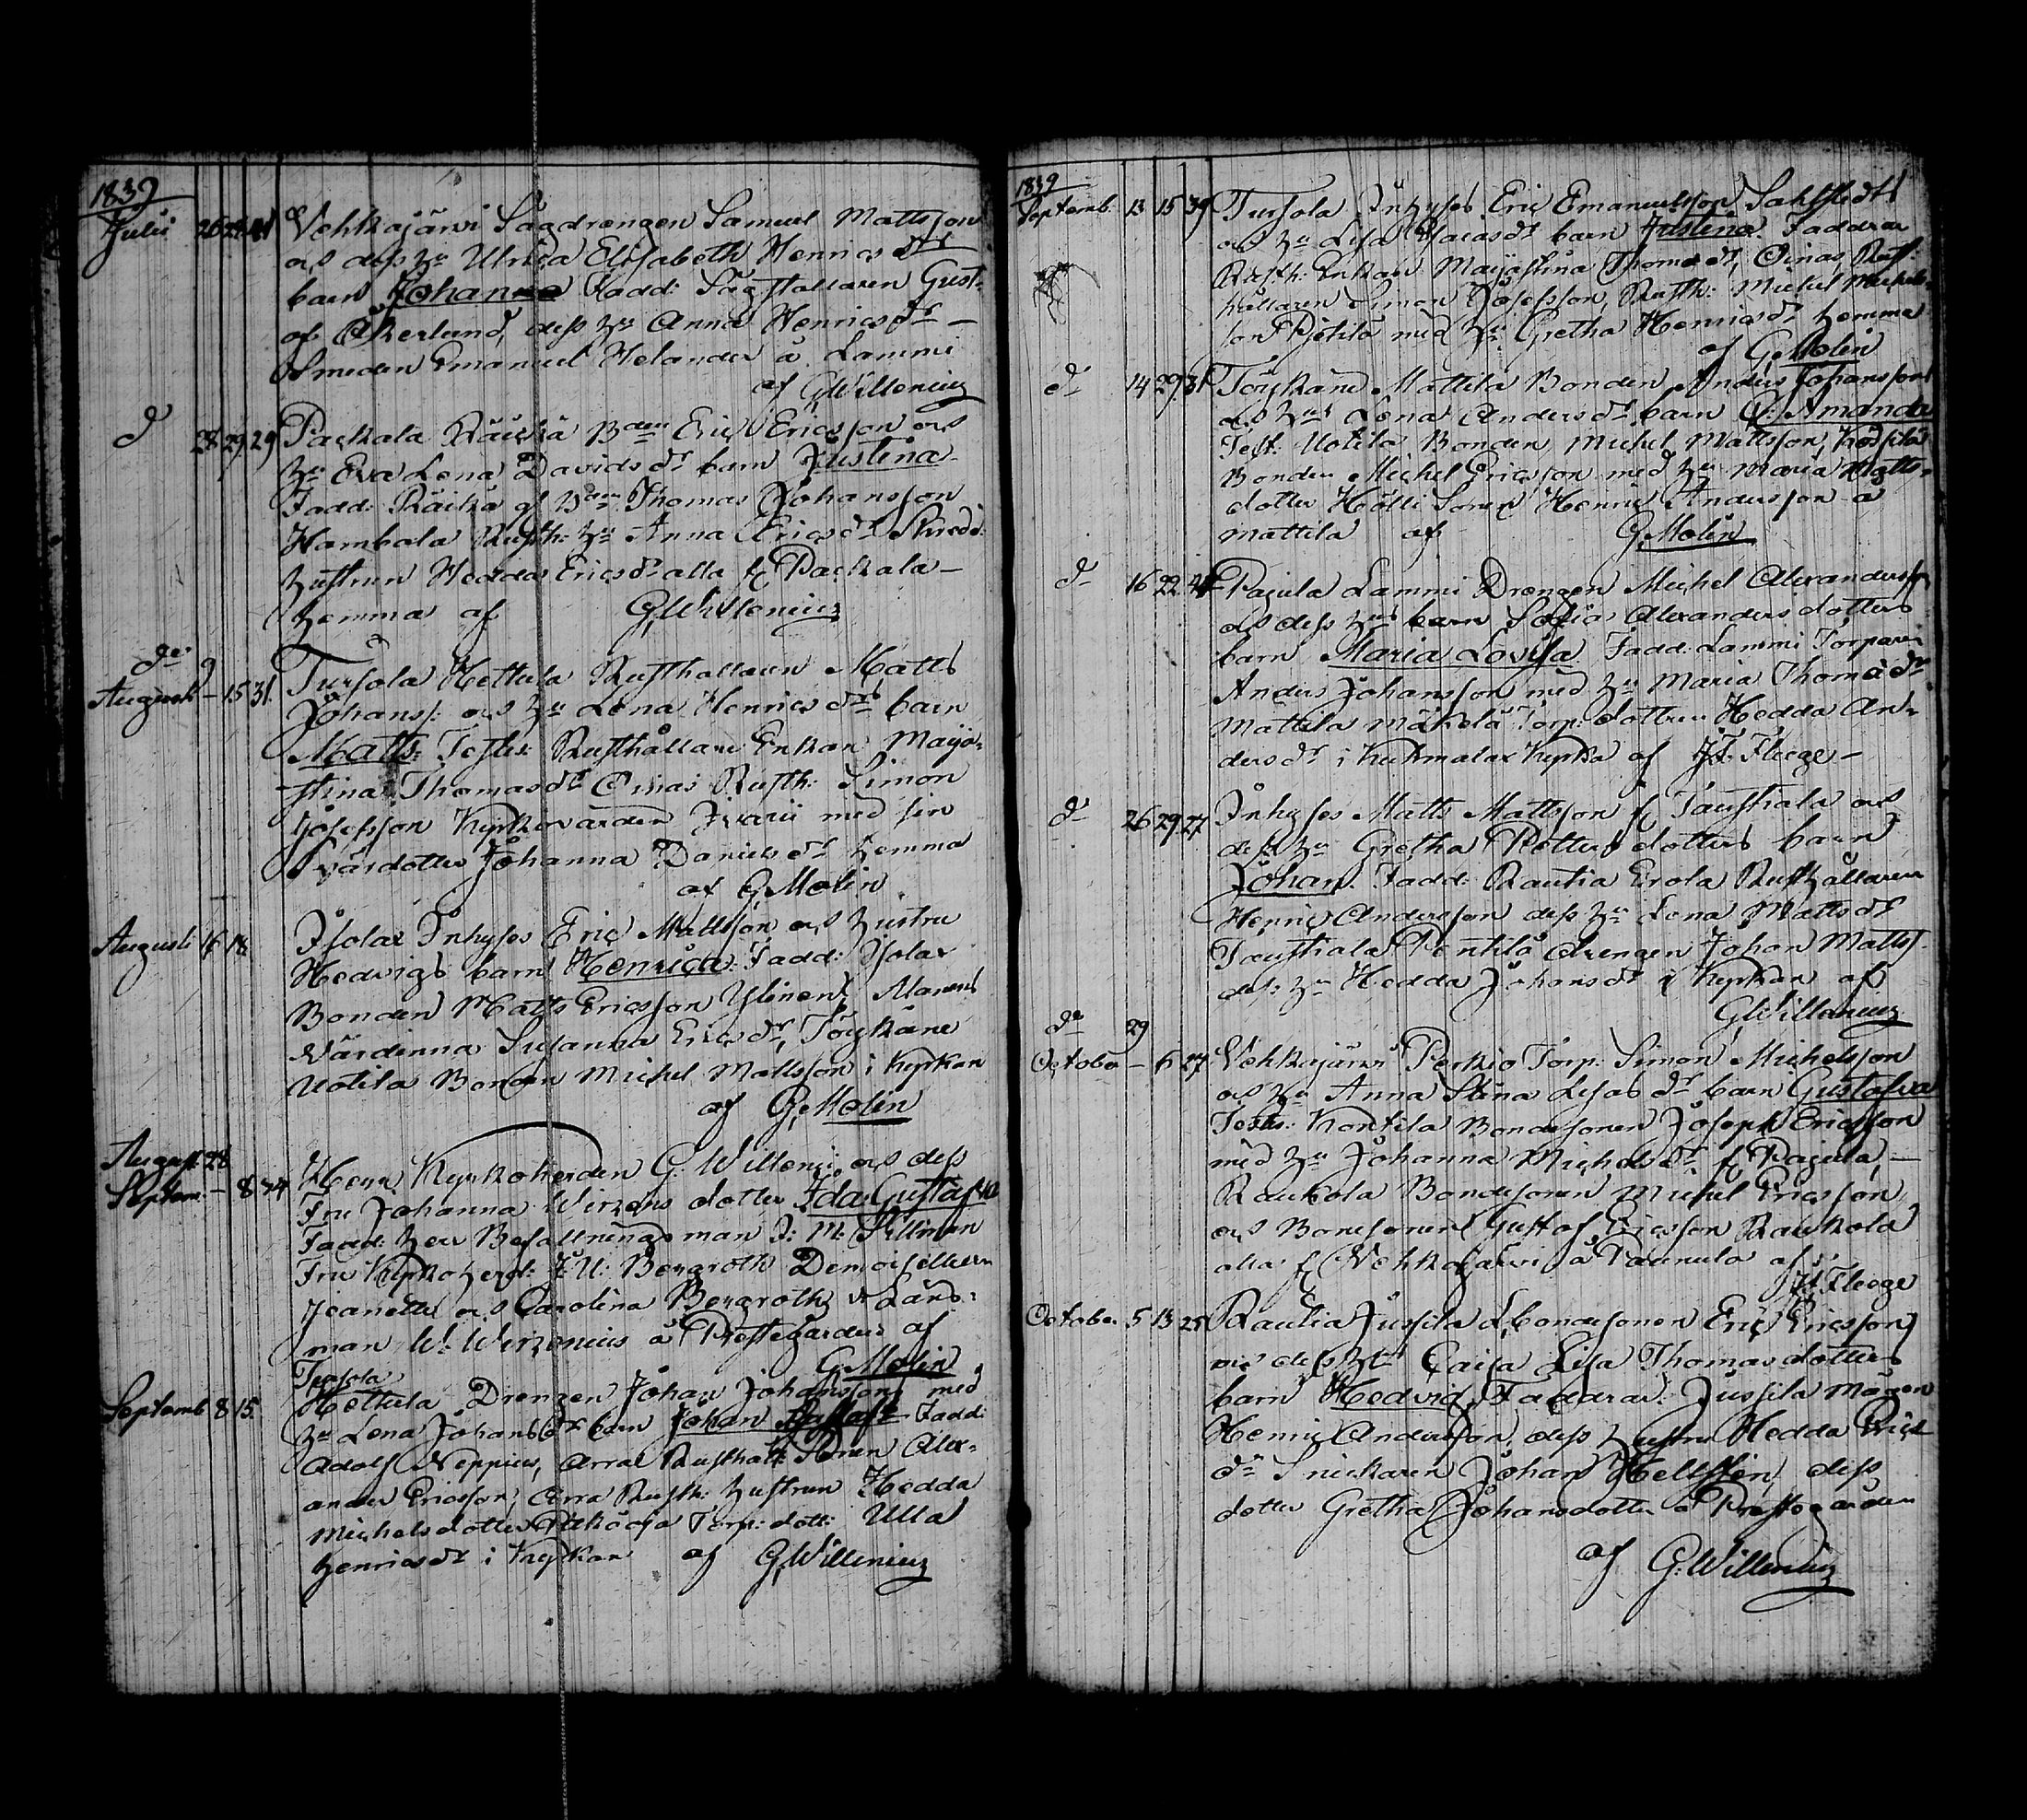 1839
Julii 26 28 41 Vehkajärvi Sågdrengen Samuel Mattsson
och dess hu Ulrica Elisabeth Henrics dr
barn Johanna Fadd: Sågställaren Gust-
af Åkerlund, dess hu Anna Henricsdr —
Smeden Emanuel Helander å Lammi
af G. Willenius
do 28 29 29 Packala Räikä Bden Eric Ericsson och
hu Eva Lena Davidsdr barn Justina
Fadd: Räikä gl Bden Thomas Johansson
Hambala Rusth: hu Anna Ericsdr
hustrun Hedda Ericsdr alla fr Packala —
hemma af G. Willenius
do 9
Augusti — 15 31. Tursola Hettula Rusthållaren Matts
Johanss: och hu Lena Henrics drs barn
Matts: Test: Rusthållare Enkan Maija-
stina Thomasdr Oinas Rusth: Simon
Josefsson Kyrkovärden Ivari med sin
svärdotter Johanna Danielsdr hemma
af G. Molin
Augusti 16 18 Isolax Inhyses Eric Mattsson och hustru
Hedvigs barn Henrica: Fadd: Isolax
Bonden Matts Ericsson Ylinen,
Värdinna Susanna Ericsdr, Töykäne
Uotila Bonden Michel Mattsson i Kyrkan
af G. Molin
August 28
Septem: — 8 34 Herr Kyrkoherden G. Willeni: och dess
Fru Johanna Wirzens dotter Ida Gustafva
Fadd: Herr Befallningsman J: M: Pillman
Fru Kyrkoherd: Bergroth Demoisellerna
Jeanette och Carolina Bergroth, v Läns-
man W. Wirzenius å Prestegården af
G. Molin
Tursola
Septemb 8 15 Hettula Drengen Johan Johansson med
hu Lena Johansdr barn Johan Fadd:
Adolf Neppius, Arra Rusthåll: Sonen Alex-
ander Ericsson, Arra Rusth: hustrun Hedda
Michelsdotter Torp: dott: Ulla
Henricsdr i Kyrkan af G. Willenius
1839
Septemb. 13 15 39 Tursola Inhyses Eric Emanuelsson Sahlstedt
och hu Lisa dr barn Justina. Faddrar
Rusth: Enkan Maijastina Thomædr, Oinas Rust-
hållaren Simon Josefsson, Rusth: Michel Michels-
son Pietilä med hu Gretha Henricsdr hemma
af G. Molin
do 14 29 31 Töykäne Mattila Bonden Anders Johansson
och hus Lena Andersdr barn Amanda
Test: Uotila Bonden Michel Mattsson,
Bonden Michel Ericsson med hu Maria Matts-
dotter Hölli Sonen Henric Andersson å
Mattila af G. Molin
do 16 22 Pajula Lammi Drengen Michel Alexandersson
och dess hus barn Sofia Alexanders dotters
barn Maria Lovisa. Fadd: Lammi Torparen
Anders Johansson med hu Maria Thomædr
Mattila Mäkelä Torp: dottren Hedda An-
dersdr i Kuhmalax Kyrka af Fleege —
do 26 29 27 Inhyses Matts Mattsson fr Taustiala och
dess hu Gretha Petters dotters barn
Johan. Fadd: Rautia Erola Rusthållaren
Henric Andersson dess hu Lena Mattsdr
Taustiala Penttilä drengen Johan Mattss:
dess hu Hedda Johansdr i Kyrkan af
G. Willenius
do 29
October — 6 27 Vehkajärvi Perkiö Torp: Simon Michelsson
och hu Anna Stina dr barn Gustafva
Test: Konttila Bondesonen Joseph Ericsson
med hu Johanna Michelsdr fr Pajula, —
Raukola Bondesonen Michel Ericsson,
och Bondesonen Gustaf Ericsson Raukola
alla fr Vehkajärvi å Paunula af
Fleege
October 5 13 25 Rautia Jussila Bondesonen Eric Ericsson
och dess hus Caisa Lisa Thomasdotters
barn Hedvig, Faddrar: Jussila Mågen
Henric Andersson dess hustru Hedda Erics
dr Snickaren Johan Hellsten, dess
dotter Gretha Johansdotter å Prestogården
af G. Willenius